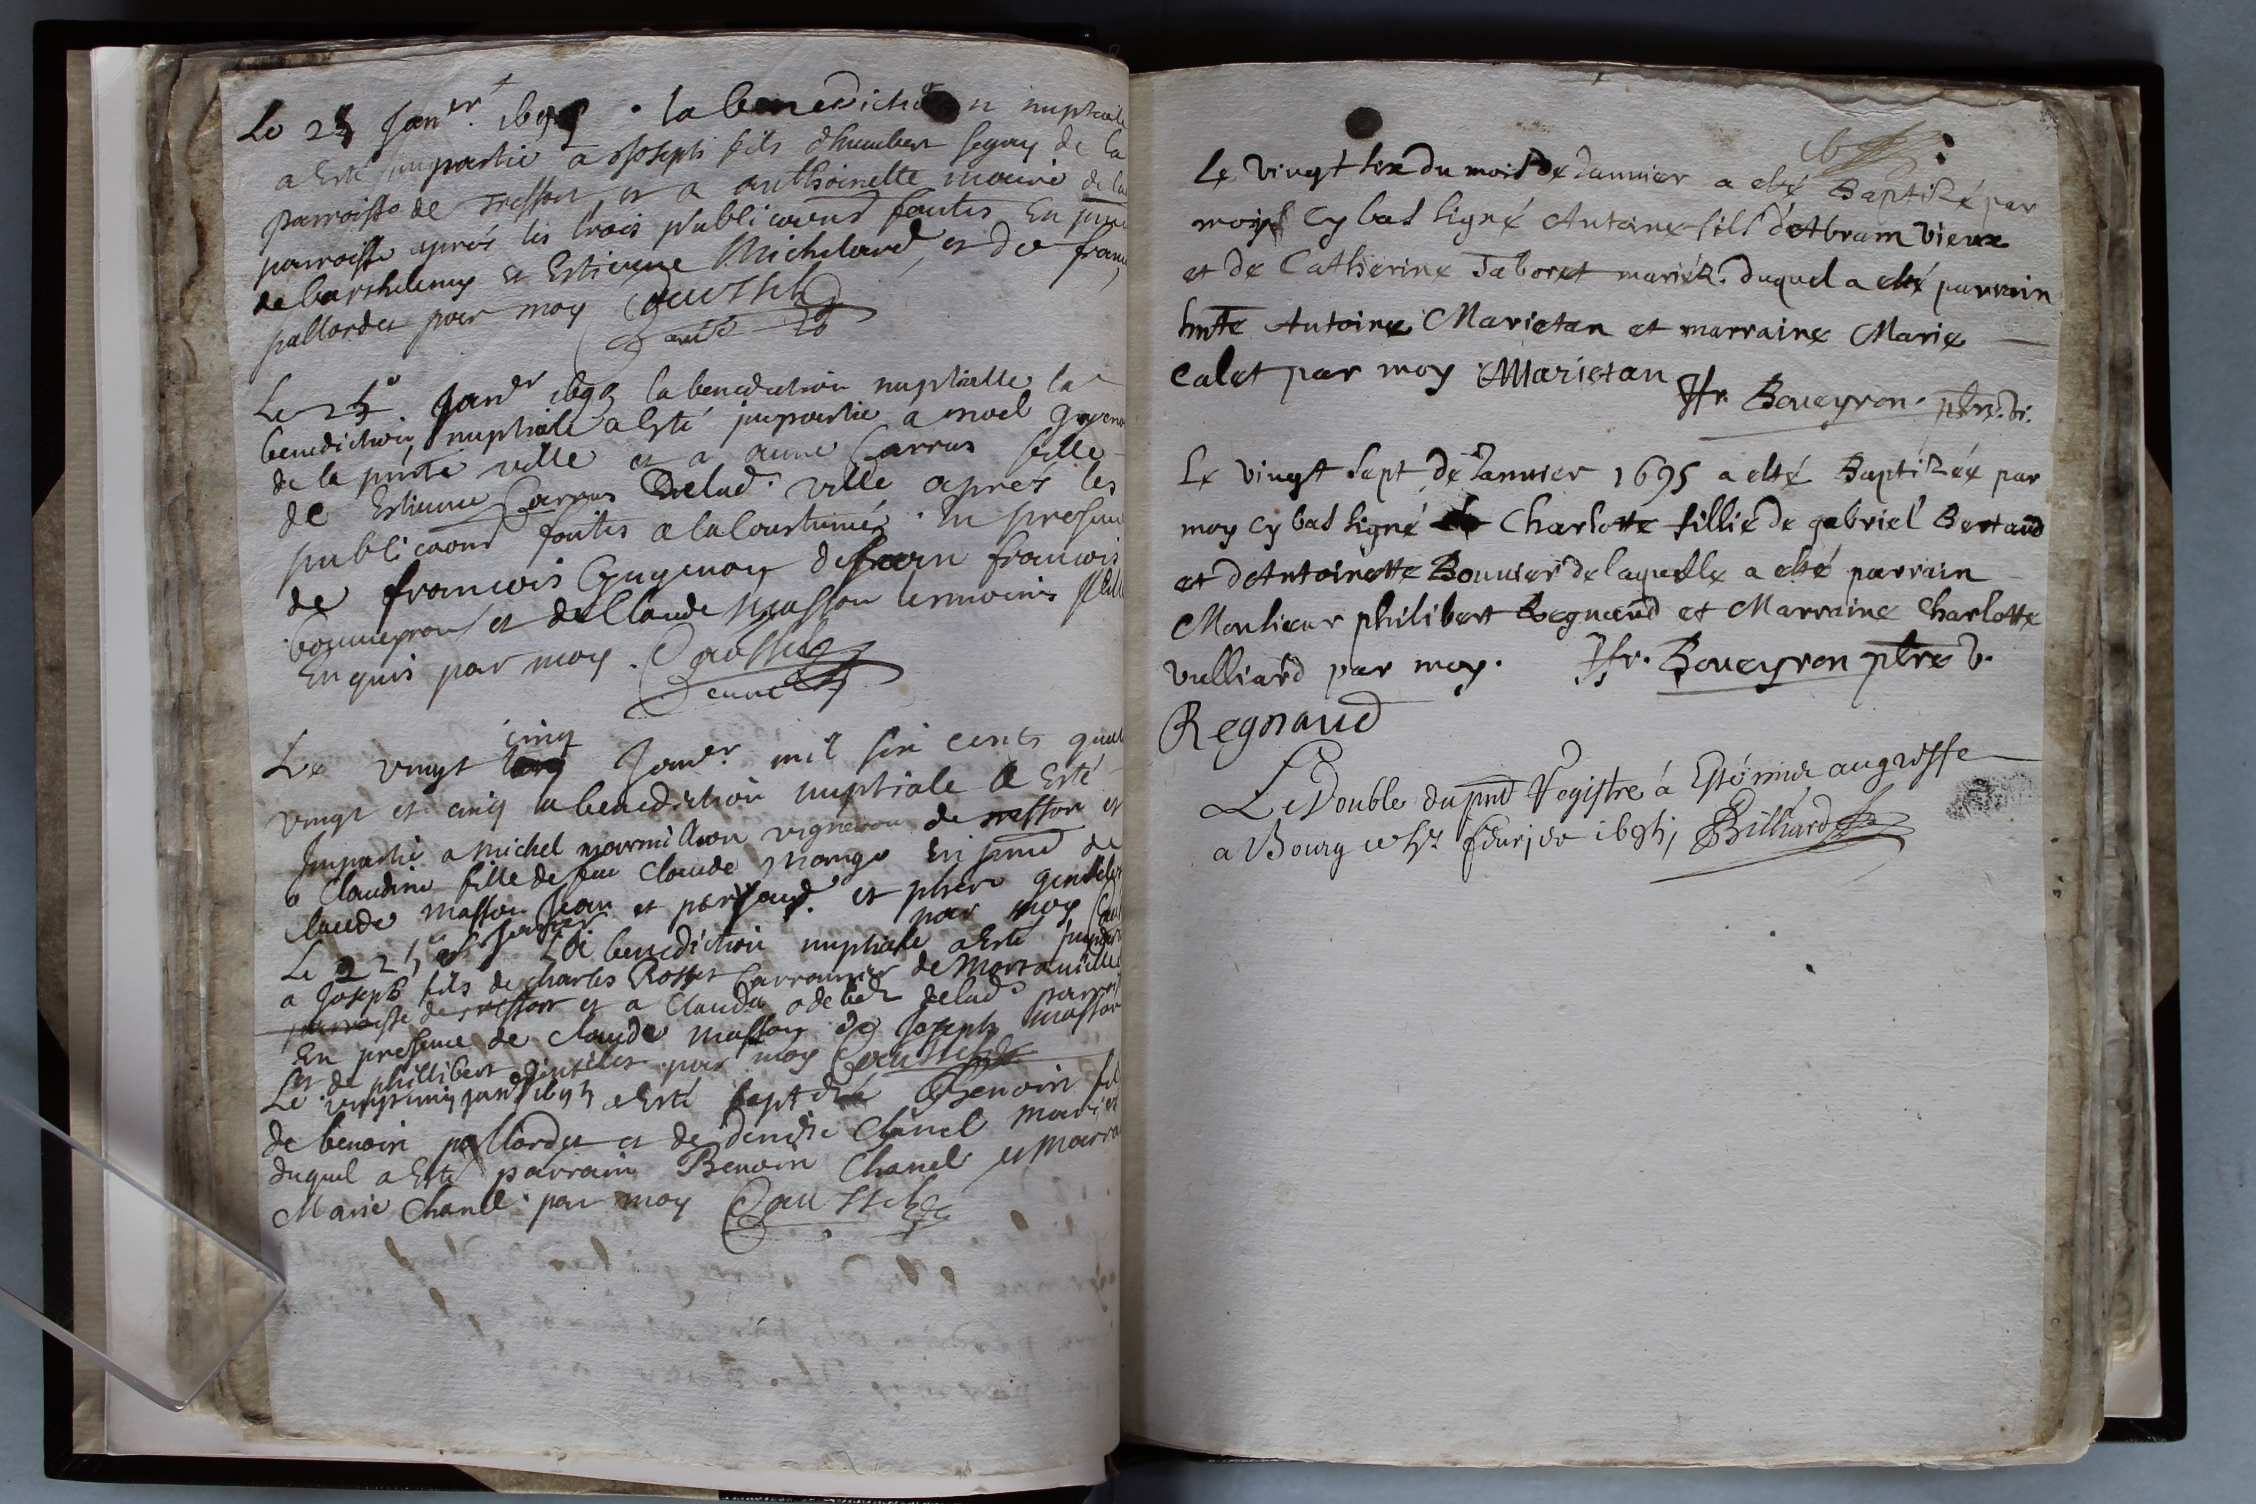 Le 25 Janer 1695 . la benediction nuptiale
a Esté impartie a Joseph fils dhumbert seguy de la
parroisse de Tresfort et a anthoinette moiure de la
parroisse aprés les trois publicaons faites En pnce
de barthelemy et Estienne Michelard et de fran
pallordet par moy Gaussel
curé
Le 25 Janer 1695 la benediction nuptialle la
benediction nuptiale a Esté impartie a noel
de la pnte ville et a anne Carras fille
de Estienne Carras de lad. ville aprés les
publicaons faites a la Coustumée . En presence
de francois Guyenon de francois
et de Claude Masson temoins
Enquis par moy . Gaussel
curé
cinq
Le vingt Janer mil six cents quat
vingt et cinq la benediction nuptiale a Esté
Impartie a Michel marmillion vigneron de tresfort et
a Claudine fille de feu Claude En pnce de
Claude Masson Jean et et par moy
Le 25 Janier La benediction nuptiale a Esté
a Joseph fils de Charles Rosset de
parroisse de tresfort et a Claude de lad. parroisse
En presence de Claude Masson de Joseph Masson
et de phillibert par moy Gaussel
Le vingt cinq janer 1695 a Esté baptisé Benoin fil
de benoin pallordet et de denise Chanel mariés
duquel a Esté parrain Benoin Chanel et Marra
Marie Chanel par moy Gaussel
Le vingt six du mois de Januier a esté Baptisé par
moy Cy bas signé Antoine fils d'Abram Vieux
et de Catherine Taboret mariéz. duquel a esté parrain
hnte Antoine Marietan et marraine Marie
Calet par moy Marietan
Boueyron . ptre. v.
Le vingt sept de Januier 1695 a esté Baptizée par
moy cy bas signé Charlotte fillie de gabriel Bertaud
et d'Antoinette Bonnier de laquelle a esté parrain
Monsieur philibert Regnaud et Marraine Charlotte
Vulliard par moy . Boueyron ptre v.
Regnaud
Le Double du pnt Registre à Esté mis au greffe
a Bourg ce feurier 1695, Billiard